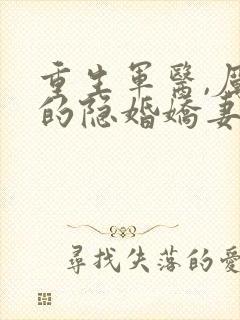 重生軍醫,
的隐婚嬌妻
尋找失落的愛